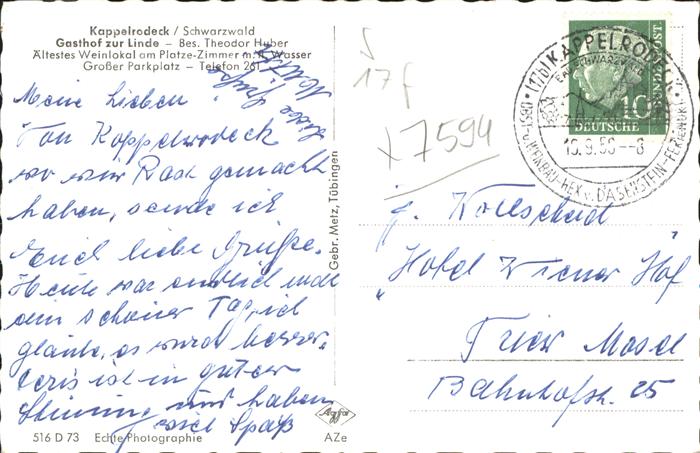 Kappelrodeck / Schwarzwald
Gasthof zur Linde – Bes. Theodor Huber
Ältestes Weinlokal am Platze-Zimmer m. fl. Wasser
Großer Parkplatz – Telefon 261
Meine Lieben!
Von Kappelrodeck
wo wir Rast gemacht
haben, sende ich
Euch liebe Grüße.
Heute war endlich mal
ein schöner Tag, ich
glaube, es wird besser.
ist in guter
Stimmung und haben
viel Spaß
Liebe Grüße
516 D 73 Echte Photographie
Agfa
AZe
Gebr. Metz, Tübingen
17 f
x 7594
(17b) KAPPELRODECK
DEUTSCHE
BUNDESPOST
10
WEINBAU-HEX v. DASENSTEIN-FERIENORT
Hotel Wiener Hof
Trier Mosel
Bahnhofstr. 25